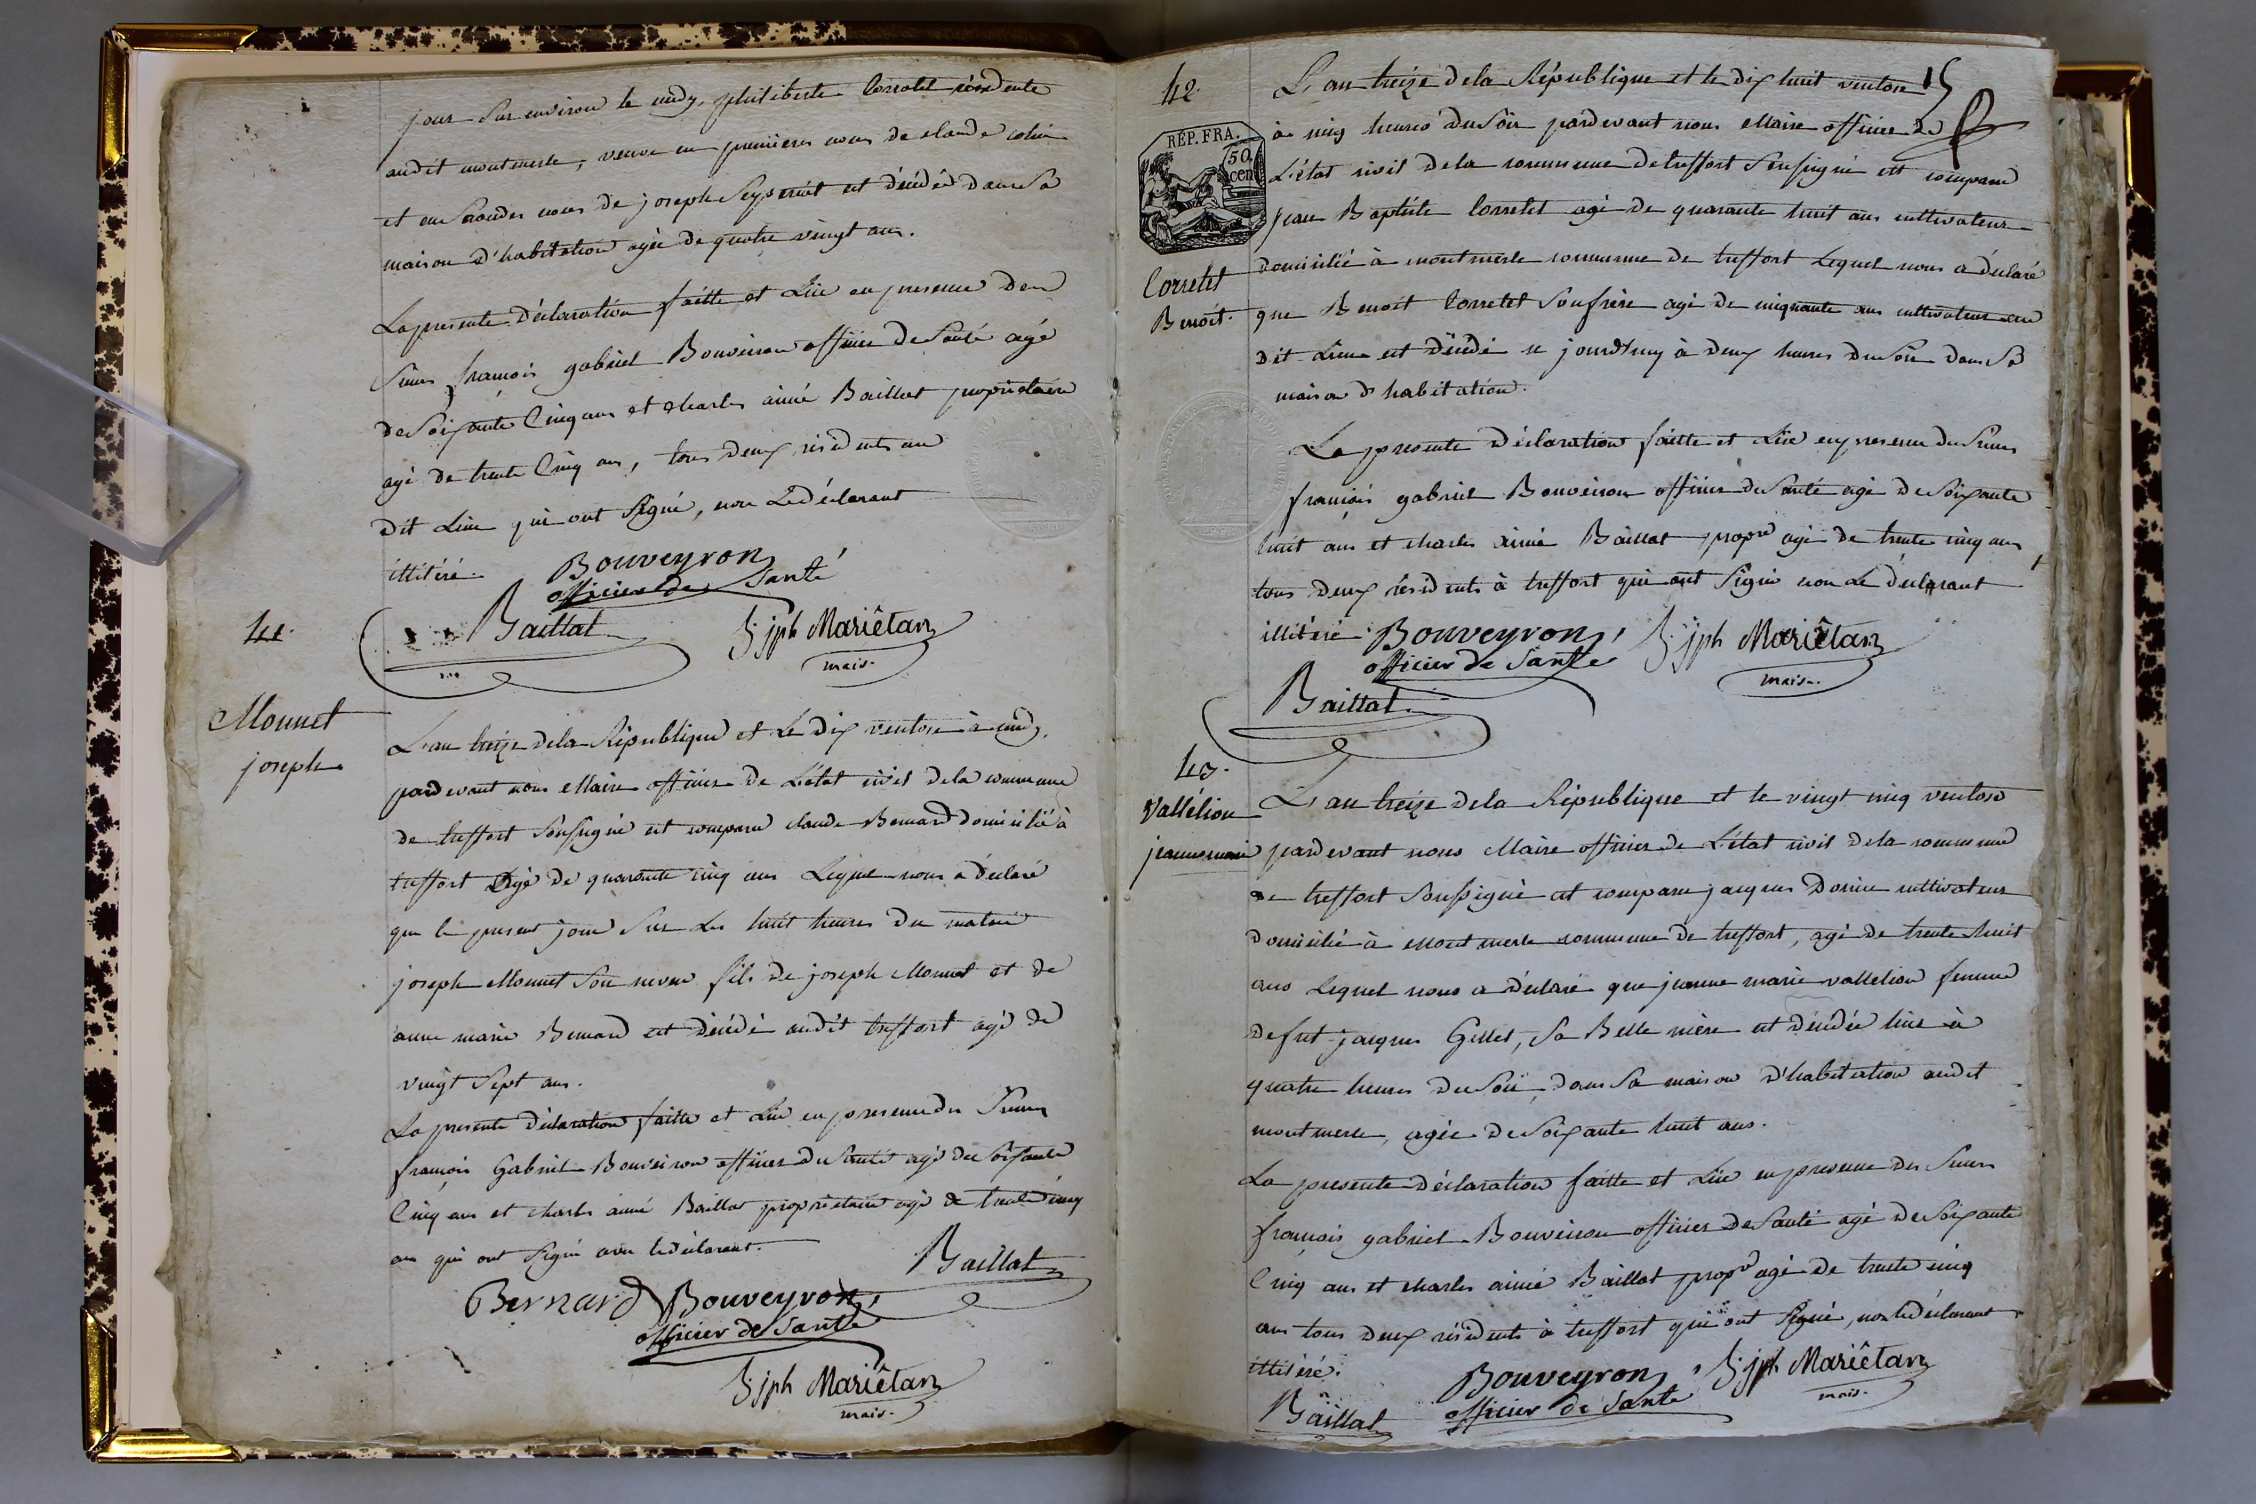 jour sur environ le midy, philiberte Corretel résidente
audit montmerle, veuve en premieres noces de claude colin
et en secondes noces de joseph Seyssenit est décédée dans sa
maison d'habitation agée de quatre vingt ans.
La presente déclaration faitte et Lüe en presence des
Sieurs françois gabriel Bouveiron officier de Santé agé
de Soixante Cinq ans et charles aimé Baillat propriétaire
agé de trente Cinq ans, tous deux résidents au
dit Lieu qui ont Signé, non Ledéclarant
illitéré.
Bouveyron
officier de Santé
Baillat
jph Mariêtan
maire.
41.
Monnet
joseph
L'an treize dela République et Le dix ventose à midy,
pardevant nous Maire officier de L'état civil dela commune
de treffort Soussigné est comparu claude Bernard domicilié à
treffort Agé de quarante cinq ans Lequel nous a déclaré
que le present jour Sur Les huit heures du matin
joseph Monnet Son neveu fils de joseph Monnet et de
anne marie Bernard est décédé audit treffort agé de
vingt Sept ans.
La presente déclaration faitte et Lüe en presence des Sieurs
françois Gabriel Bouveiron officier de Santé agé de Soixante
Cinq ans et charles aimé Baillat propriétaire agé de trente cinq
ans qui ont Signé avec le déclarant.
Baillat
Bernard Bouveyron
officier de Santé
jph Mariêtan
maire.
15
42.
L'an treize dela République et le dix huit ventose
à cinq heures du Soir pardevant nous Maire officier de
RÉP. FRA.
50
cen
L'état civil dela commune de treffort Soussigné est comparu
jean Baptiste Corretel agé de quarante huit ans cultivateur
domicilié à montmerle commune de treffort Lequel nous a déclaré
Corretel
Benoit.
que Benoit Corretel Son frère agé de cinquante ans cultivateur au
dit Lieu est décédé ce jourd'huy à deux heures du Soir dans Sa
maison d'habitation.
La presente déclaration faitte et Lüe en presence des Sieurs
françois gabriel Bouveiron officier de Santé agé de Soixante
huit ans et charles aimé Baillat propre agé de trente cinq ans
tous deux résidents à treffort qui ont Signé non Le déclarant
illitéré
Bouveyron,
officier de Santé
jph Mariêtan
maire.
Baillat
43.
Vallélion
jeanne marie
L'an treize dela République et le vingt cinq ventose
pardevant nous Maire officier de L'état civil dela commune
de treffort Soussigné est comparu jacques Dorier cultivateur
domicilié à Montmerle commune de treffort, agé de trente huit
ans Lequel nous a déclaré que jeanne marie vallelion femme
defut jacques Gillet, Sa Belle mère est décédée hier à
quatre heures du Soir, dans Sa maison d'habitation audit
montmerle, agée de Soixante huit ans.
La presente déclaration faitte et Lüe en presence des Sieurs
françois gabriel Bouveiron officier de Santé agé de Soixante
Cinq ans et charles aimé Baillat propre agé de trente cinq
ans tous deux résidents à treffort qui ont Signé, non le déclarant
illitéré.
Bouveyron,
officier de Santé
jph Mariêtan
maire.
Baillat